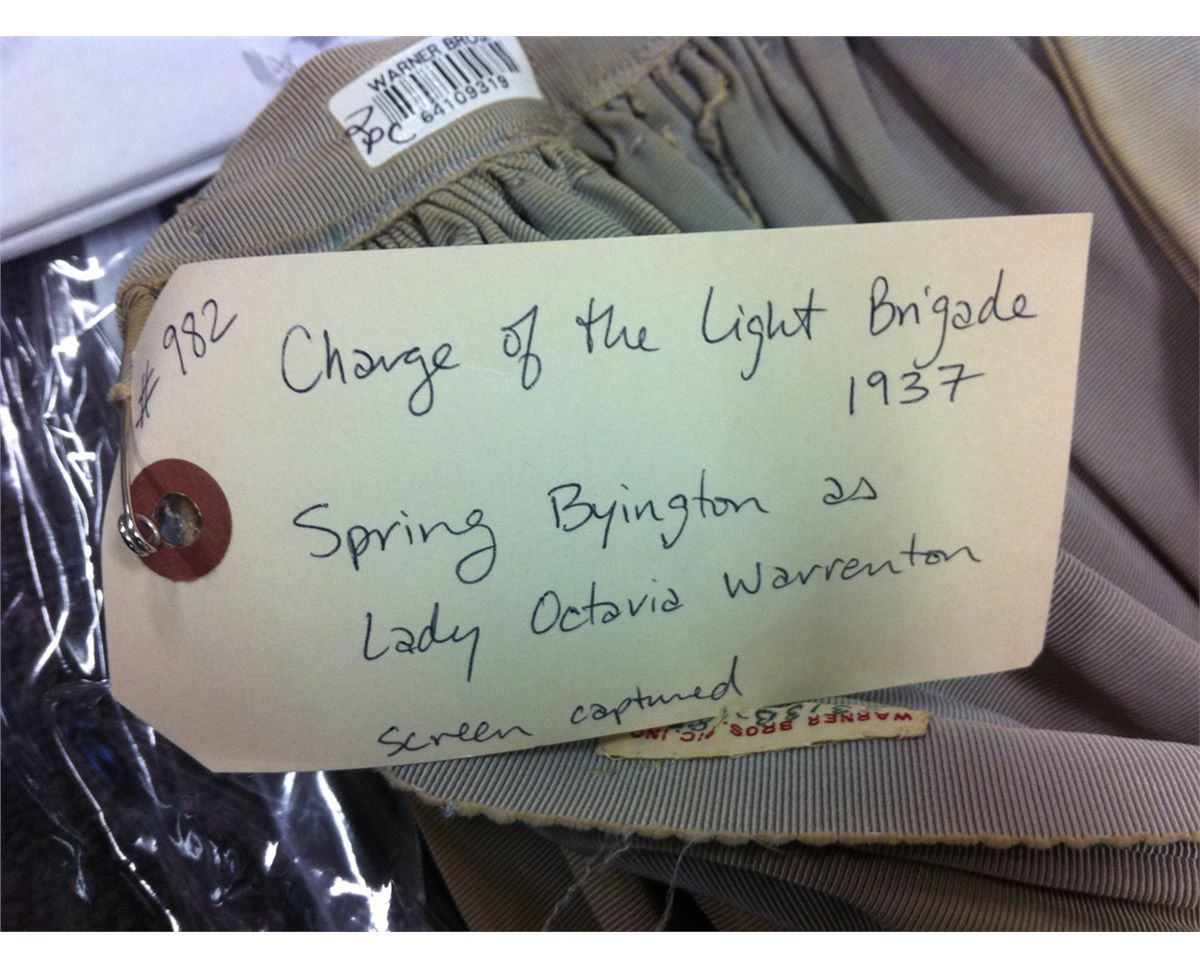 WARNER BROS.
64109319
2pc
# 982
Charge of the Light Brigade
1937
Spring Byington as
Lady Octavia Warrenton
screen captured
WARNER BROS. PIC. INC.